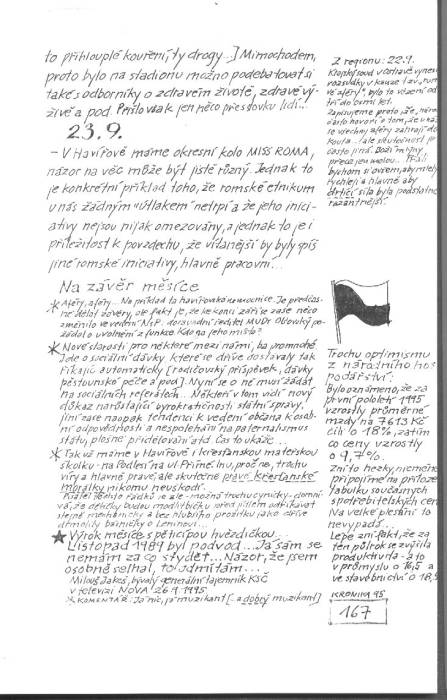 to přihlouplé kouření, ty drogy...] Mimochodem,
proto bylo na stadionu možno podebatovat si
také s odborníky o zdravém životě, zdravé vý-
živě a pod. Přišlo však jen něco přes stovku lidí...
23.9.
- V Havířově máme okresní kolo MISS ROMA,
názor na věc může být jistě různý. Jednak to
je konkrétní příklad toho, že romské etnikum
u nás žádným "útlakem" netrpí a že jeho inici-
ativy nejsou nijak omezovány, a jednak to je i
příležitost k povzdechu, že vítanější by byly spíš
jiné romské iniciativy, hlavně pracovní...
Na závěr měsíce
* Aféry, aféry... Na příklad ta havířovská nemocnice. Je předčas-
né dělat závěry, ale fakt je, že ke konci září se zase něco
změnilo ve vedení NsP. dosavadní ředitel MUDr. požá-
dal o uvolnění z funkce. Kdo na jeho místo?
* Nové starosti pro některé mezi námi, ba promnohé.
Jde o sociální dávky které se dříve dostávaly tak
říkajíc automaticky [rodičovský příspěvek, dávky
pěstounské péče a pod.] Nyní se o ně musí žádat
na sociálních referátech... Někteří v tom vidí nový
důkaz narůstající byrokratičnosti státní správy,
jiní zase naopak tendenci k vedení občana k osob-
ní odpovědnosti a nespoléhání na paternalismus
státu, plošné přidělování atd. Čas to ukáže...
* Tak už máme v Havířově i křesťanskou mateřskou
školku - na Podlesí na ul. Přímé. Inu, proč ne, trochu
víry a hlavně pravé, ale skutečně pravé křesťanské
morálky nikomu neuškodí.
Pisatel těchto řádků je ale - možná trochu cynicky - domní-
vá, že dětičky budou modlitbičky před jídlem odříkávat
stejně mechanicky a bez hlubšího prožitku jako dříve
drmolily básničky o Leninovi...
★ Výrok měsíce s pěticípou hvězdičkou...
Listopad 1989 byl podvod... Já sám se
nemám za co stydět... Názor, že jsem
osobně selhal, to odmítám...
Milouš Jakeš, bývalý generální tajemník KSČ
v televizi NOVA 26.9.1995
* KOMENTÁŘ: Já nic, já muzikant [..a dobrý muzikant]
Z regionu: 22.9.
Krajský soud v Ostravě vynesl
rozsudky v kauze tzv.
ve aféry", bylo to vězení od
tří do osmi let.
Zapisujeme proto, že, náro
často hovoří o tom, že u nás
se všechny aféry zahrají do
kouta... ale skutečnost je
často jiná. Boží mlýny
přece jen melou... Přáli
bychom si ovšem, aby mlely
rychleji a hlavně aby
drtící síla byla podstatně
razantnější.
Trochu optimismu
z národního hos
podářství:
Bylo oznámeno, že za
první pololetí 1995
vzrostly průměrné
mzdy na 7613 Kč
čili o 18%, zatím
co ceny vzrostly
o 9,7%.
Zní to hezky, nicméně
připojíme na příloze
tabulku současných
spotřebitelských cen
Na velké plesání to
nevypadá...
Lépe zní fakt, že za
ten půlrok se zvýšila
produktivita - a to
v průmyslu o 16,5 a
ve stavebnictví o 18,9
KRONIKA 95
167